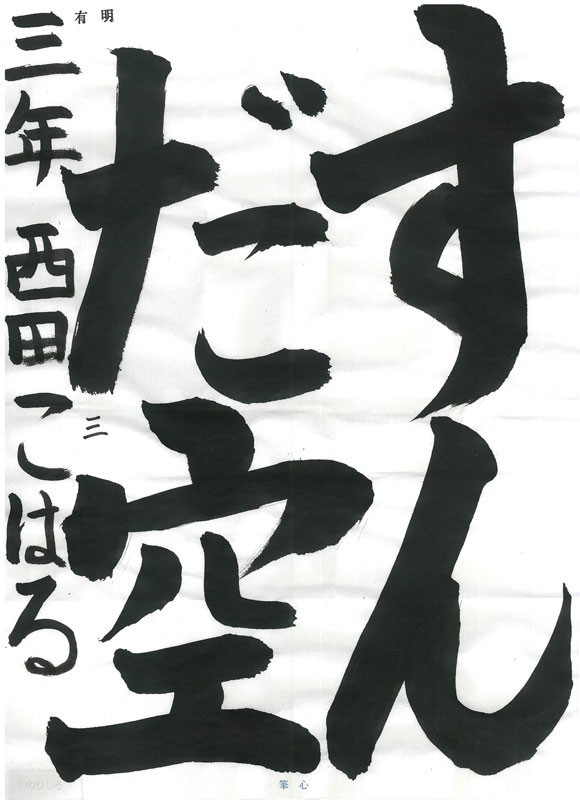 すん
だ空
三年 西田こはる
有明
三
筆心